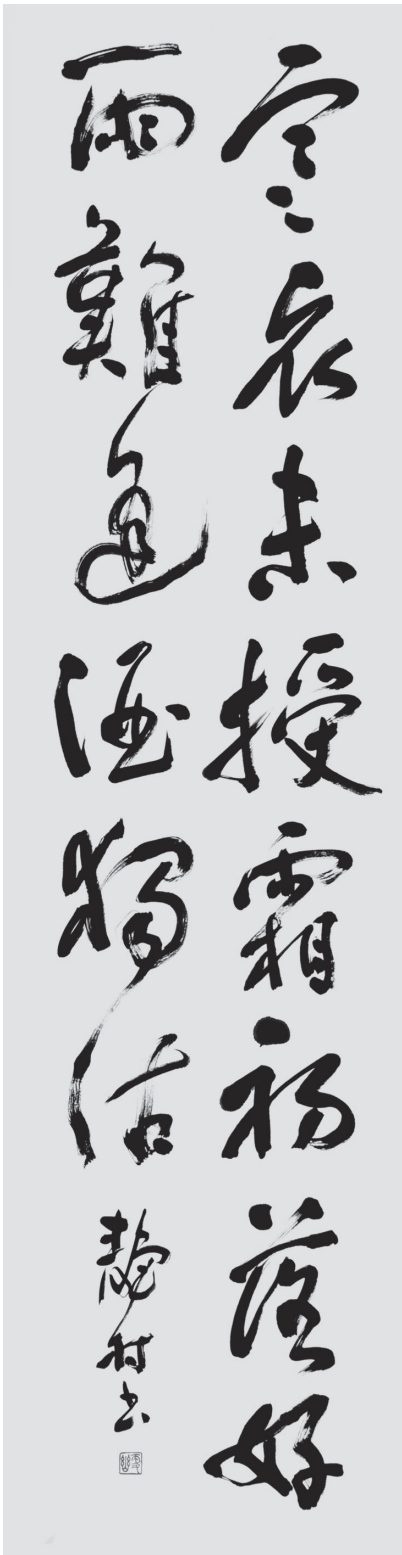 寒衣未授霜初落好
雨難逢酒獨沽
靜村書